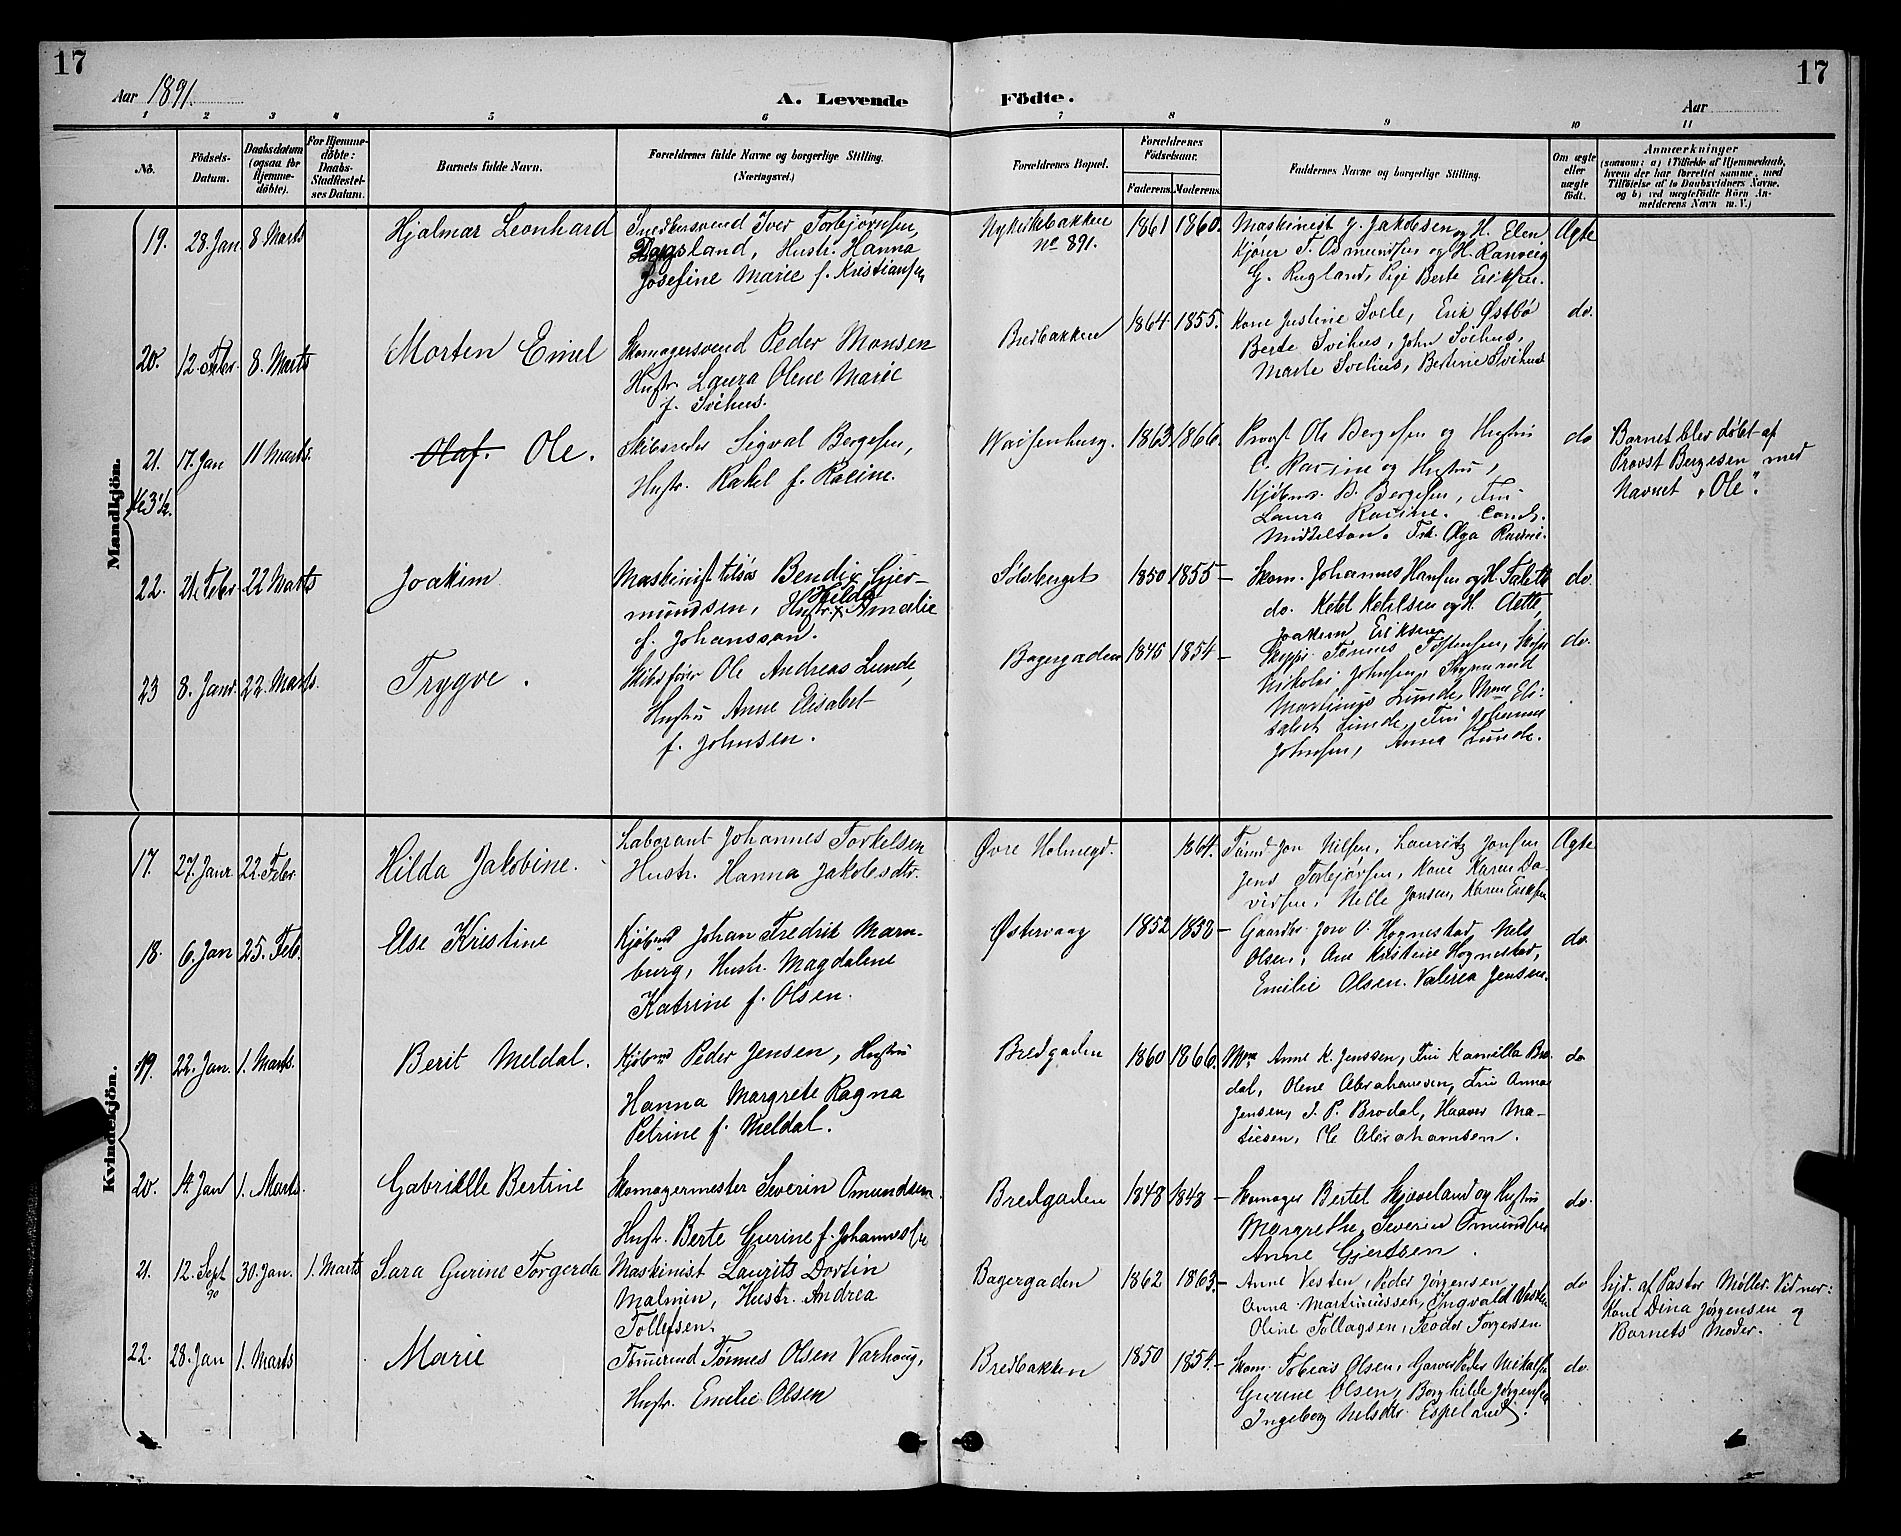 17
17
Aar 1891.
A. Levende Födte.
Aar
1 2 3 4 5 6 7 8 9 10 11
No.
Födsels-Datum.
Daabsdatum (ogsaa for Hjemme-döbte).
For Hjemme-döbte: Daabs-Stadfæstel-ses Datum.
Barnets fulde Navn.
Forældrenes fulde Navne og borgerlige Stilling.
(Næringsvei.)
Forældrenes Bopæl.
Forældrenes Födselsaar.
Faderens. Moderens.
Faddernes Navne og borgerlige Stilling.
Om ægte eller uægte födt.
Anmærkninger
(saasom: a) i Tilfælde af Hjemmedaab,
hvem der har forrettet samme, med
Tilföielse af to Daabsvidners Navne,
og b) ved uægtefödte Börn An-
melderens Navn m. V.)
Mandkjön.
19. 28. Jan 8 Marts Hjalmar Leonhard
Snedkersvend Iver Torbjørnsen,
Hustr. Hanna
Josefine Marie f. Kristiansen
Nykirkebakken
no 891.
1861 1860.
Maskinist J. Jakobsen og H. Elen
Kjører T. Osmundsen og H. Ranveig
G. Rugland, Pige Berte Eriksen.
Ægte
20. 12. Febr. 8. Marts Morten Emil
Skomagersvend Peder Monsen
Hustr. Laura Olene Marie
f. Svihus.
Bredbakken
1864 1855.
Kone Justine Soele, Erik Østbø
Berte Svihus, John Svihus,
Marte Svihus, Bertine Svihus
do.
21. 17. Jan 11 Marts. Olaf. Ole.
Skibsreder Sigval Bergesen,
Hustr. Rakel f. Racine.
Waisenhusg. 1863 1866.
Provst Ole Bergesen og Hustru
C. Racine og Hustru,
Kjøbm. B. Bergesen, Frü
Laura Racine. Cand.
Middelton. Frk. Olga Racine.
do
Barnet blev døbt af
Provst Bergesen med
Navnet "Ole".
22. 21. Febr 22 Marts Joakim
Maskinist tilsøs Bendix Gjer-
mundsen, Hustr. Hilda Amalie
f. Johansson.
Sølvberget 1850 1855 -
Skom. Johannes Hansen og H. Talette
do. Ketel Ketelsen og H. Aette,
Joakim Eriksen
do.
23 8. Janr. 22. Marts. Trygve.
Skibsfører Ole Andreas Lunde,
Hustru Anne Elisabet
f. Johnsen.
Bagergaden 1845 1854 -
Skipp. Tønnes Tostensen,
Nikolai Johnsen, Styrmand
Martinius Lunde, Mme Eli-
sabet Lunde, Frü Johanne
Johnsen, Anna Lunde.
do.
Kvindekjön.
17. 27. Janr 22. Febr. Hilda Jakobine.
Laborant Johannes Torkelsen
Hustr. Hanna Jakobsdtr.
Øvre Holmegd. 1864.
Tømd Jon Nilsen, Lauritz Jonsen
Jens Torbjørsen, Kone Karen Da-
vidsen, Nelle Jonsen, Karen Eriksen
Ægte
18. 6. Jan 25. Feb. Else Kristine
Kjøbmd Johan Fredrik Marn-
burg, Hustr. Magdalene
Katrine f. Olsen.
Østervaag 1852 1858 -
Gaardbr. Jon O. Hognestad, Nels
Olsen, Ane Kristine Hognestad,
Emilie Olsen. Valerea Jensen.
do.
19. 22. Jan. 1. Marts. Berit Meldal.
Kjøbmd Peder Jensen, Hustru
Hanna Margrete Ragna
Petrine f. Meldal.
Bredgaden 1860 1866.
Mme Anne K. Jenssen, Frü Kamilla Bro-
dal, Olene Abrahamsen, Frü Anna
Jensen, J. P. Brodal, Haaver Ma-
tiesen, Ole Abrahamsen.
do
20. 14. Jan 1. Marts. Gabrielle Bertine
Skomagermester Severin Omundsen
Hustr. Berte Gurine f. Johannesen
Bredgaden 1848 1848 -
Skomager Bertel Skjæveland og Hustru
Margrethe, Severin Omundsen
Anne Gjertsen.
do.
21. 12. Sept 90 30. Jan. 1. Marts Sara Gurine Torgerda
Maskinist Laurits Dortin
Malmin, Hustr. Andrea
Tollefsen.
Bagergaden 1862 1863 -
Anne Vesten, Peder Jørgensen
Anna Martinussen, Ingvald Vesten
Oline Tollagsen, Teodor Torgersen
do
Hjd. af Pastor Møller. Vidner:
Kone Dina Jørgensen
Barnets Moder.
22. 28. Jan 1. Marts Marie
Tømermd Tønnes Olsen Varhaug,
Hustr. Emilie Olsen
Bredbakken 1850 1854 -
Skom. Tobias Olsen, Garver Peder Mikalsen
Gurine Olsen, Borghilde Jørgensen
Ingeborg Nelsdtr. Espeland.
do.